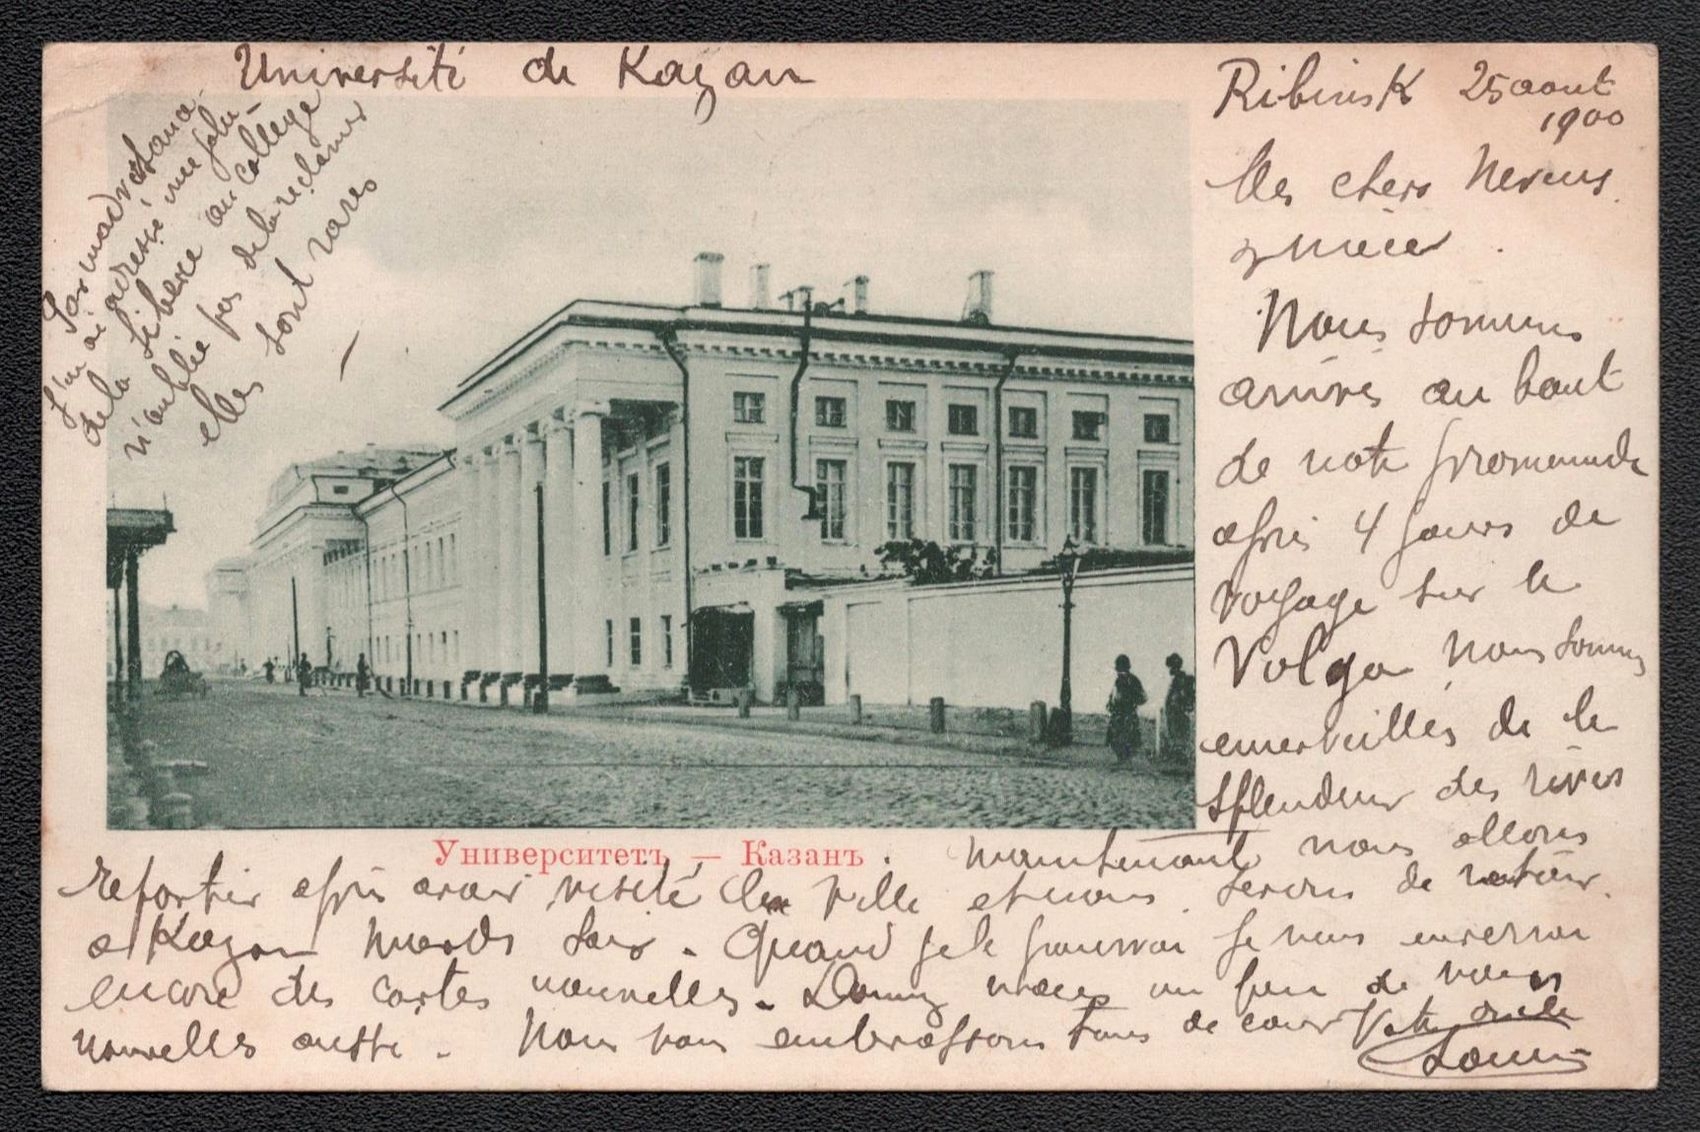 Université de Kazan
Ribinsk 25 aout
1900
Mes chers Neveus
& nièce
Nous sommes
arrivés au bout
de notre promenade
après 4 jours de
voyage sur le
Volga, nous sommes
emerveillés de la
splendeur des rives
Университетъ — Казань.
Maintenant nous allons
repartir après avoir visité la ville et nous serons de retour
a Kazan mardi soir. Quand je le pourrai je vous enverrai
encore des cartes nouvelles. Donnez nous un peu de vos
nouvelles aussi. Nous vous embrassons tous de cœur Votre oncle
Louis
J'en ai adressé une
de la Siberie au college
n'oublie pas de la reclamer
elles sont rares